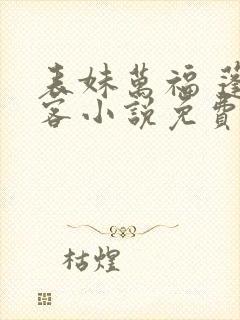 表妹萬福 蓬
客小說免費
枯煌